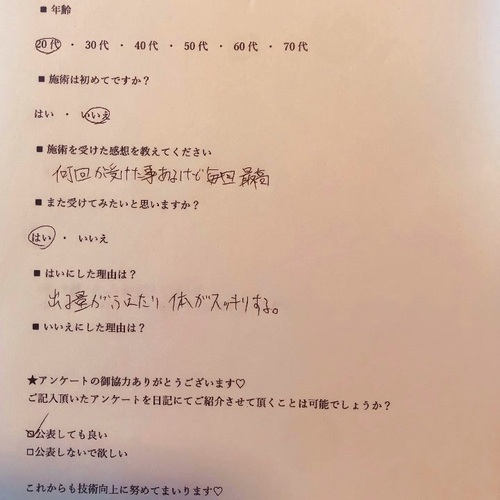 ■ 年齢
20代 ・ 30代 ・ 40代 ・ 50代 ・ 60代 ・ 70代
■ 施術は初めてですか？
はい ・ いいえ
■ 施術を受けた感想を教えてください
何回か受けた事あるけど毎回最高
■ また受けてみたいと思いますか？
はい ・ いいえ
■ はいにした理由は？
出る量がふえたり 体がスッキリする。
■ いいえにした理由は？
★アンケートの御協力ありがとうございます♡
ご記入頂いたアンケートを日記にてご紹介させて頂くことは可能でしょうか？
☑公表しても良い
□公表しないで欲しい
これからも技術向上に努めてまいります♡